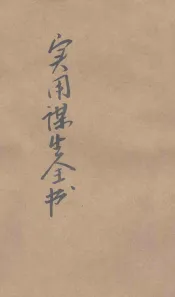 实用谋生全书